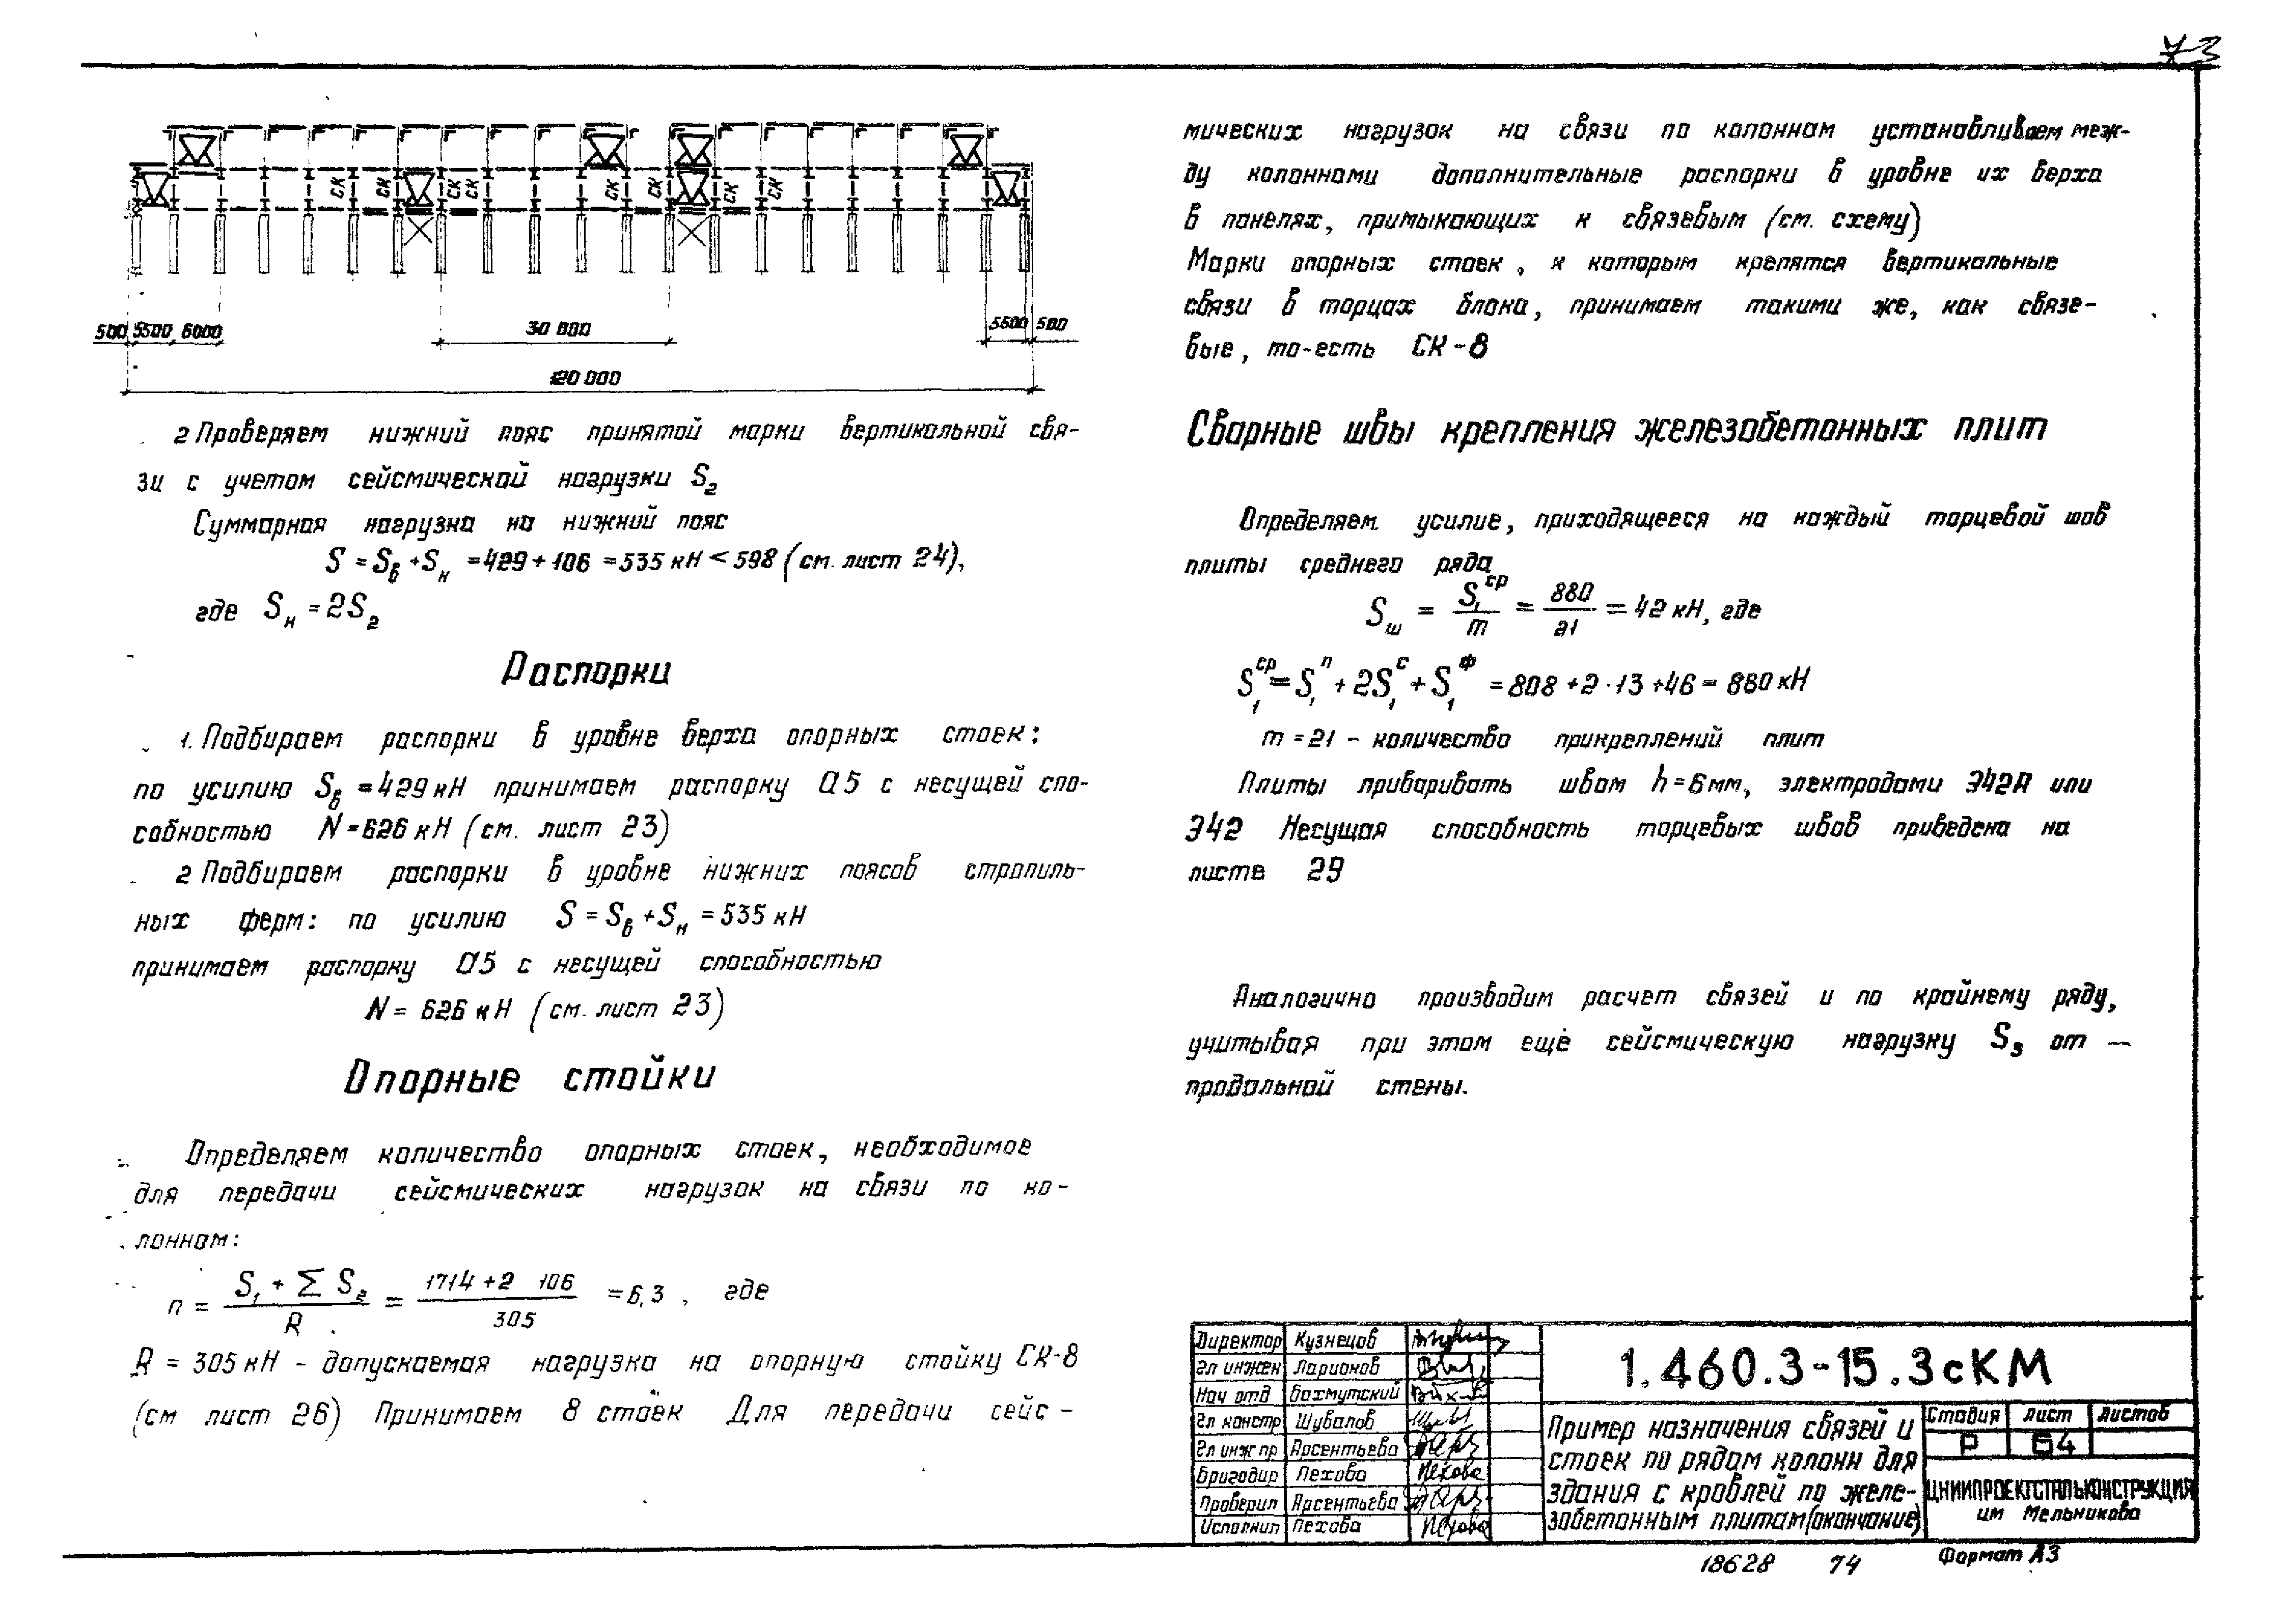 73
СК СК СК СК СК СК СК СК
500 5500 6000 30 000 5500 500
120 000
2 Проверяем нижний пояс принятой марки вертикальной свя-
зи с учетом сейсмической нагрузки S₂
Суммарная нагрузка на нижний пояс
S = Sв + Sн = 429 + 106 = 535 кН < 598 (см. лист 24),
где Sн = 2S₂
Распорки
1. Подбираем распорки в уровне верха опорных стоек:
по усилию Sв = 429 кН принимаем распорку Q5 с несущей спо-
собностью N = 626 кН (см. лист 23)
2 Подбираем распорки в уровне нижних поясов стропиль-
ных ферм: по усилию S = Sв + Sн = 535 кН
принимаем распорку Q5 с несущей способностью
N = 626 кН (см. лист 23)
Опорные стойки
Определяем количество опорных стоек, необходимое
для передачи сейсмических нагрузок на связи по ко-
лоннам:
n = (S₁ + Σ S₂) / R = (1714 + 2 106) / 305 = 6,3 , где
R = 305 кН - допускаемая нагрузка на опорную стойку СК-8
(см лист 26) Принимаем 8 стоек Для передачи сейс-
мических нагрузок на связи по колоннам устанавливаем меж-
ду колоннами дополнительные распорки в уровне их верха
в панелях, примыкающих к связевым (см. схему)
Марки опорных стоек, к которым крепятся вертикальные
связи в торцах блока, принимаем такими же, как связе-
вые, то-есть СК-8
Сварные швы крепления железобетонных плит
Определяем усилие, приходящееся на каждый торцевой шов
плиты среднего ряда
Sш = S₁ср / m = 880 / 21 = 42 кН, где
S₁ср = S₁п + 2S₁с + S₁ф = 808 + 2·13 + 46 = 880 кН
m = 21 - количество прикреплений плит
Плиты приваривать швом h = 6 мм, электродами Э42А или
Э42 Несущая способность торцевых швов приведена на
листе 29
Аналогично производим расчет связей и по крайнему ряду,
учитывая при этом ещё сейсмическую нагрузку S₃ от —
продольной стены.
Директор Кузнецов
Гл инжен Ларионов
Нач отд Бахмутский
Гл констр Шувалов
Гл инж пр Арсентьева
Бригадир Пехова Пехова
Проверил Арсентьева
Исполнил Пехова Пехова
1.460.3-15.3сКМ
Пример назначения связей и
стоек по рядам колонн для
здания с кровлей по желе-
зобетонным плитам (окончание)
Стадия лист листов
Р 64
ЦНИИПРОЕКТСТАЛЬКОНСТРУКЦИЯ
им Мельникова
18628 74 Формат А3